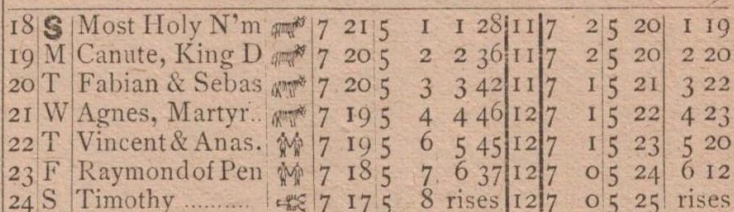 18 S Most Holy N'm 7 21 5 1 1 28 11 7 2 5 20 1 19
19 M Canute, King D 7 20 5 2 2 36 11 7 2 5 20 2 20
20 T Fabian & Sebas 7 20 5 3 3 42 11 7 1 5 21 3 22
21 W Agnes, Martyr.. 7 19 5 4 4 46 12 7 1 5 22 4 23
22 T Vincent & Anas. 7 19 5 6 5 45 12 7 1 5 23 5 20
23 F Raymond of Pen 7 18 5 7 6 37 12 7 0 5 24 6 12
24 S Timothy .......... 7 17 5 8 rises 12 7 0 5 25 rises